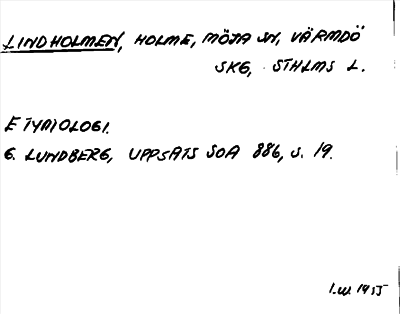 LINDHOLMEN, HOLME, MÖJA SN, VÄRMDÖ
SKG, STHLMS L.
ETYMOLOGI.
G. LUNDBERG, UPPSATS SOA 886, S. 19.
I.W. 1955